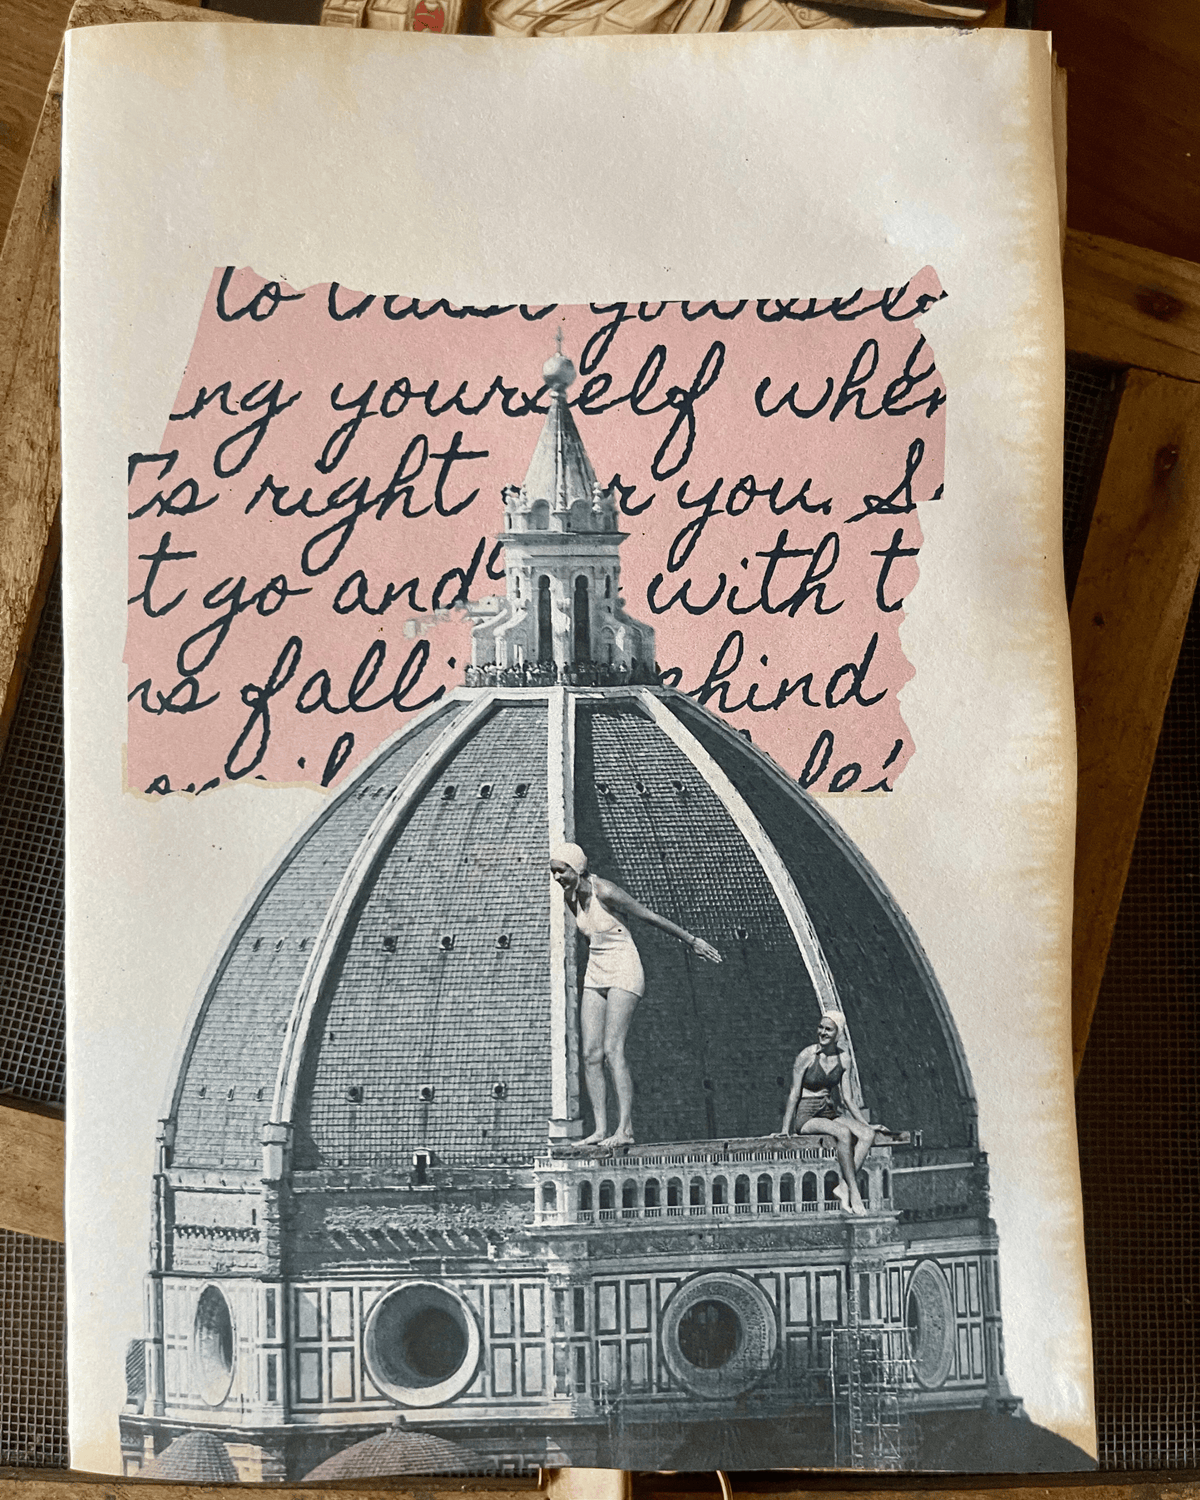 to trust yourself
ng yourself when
's right r you. S
t go and with t
ns falli hind